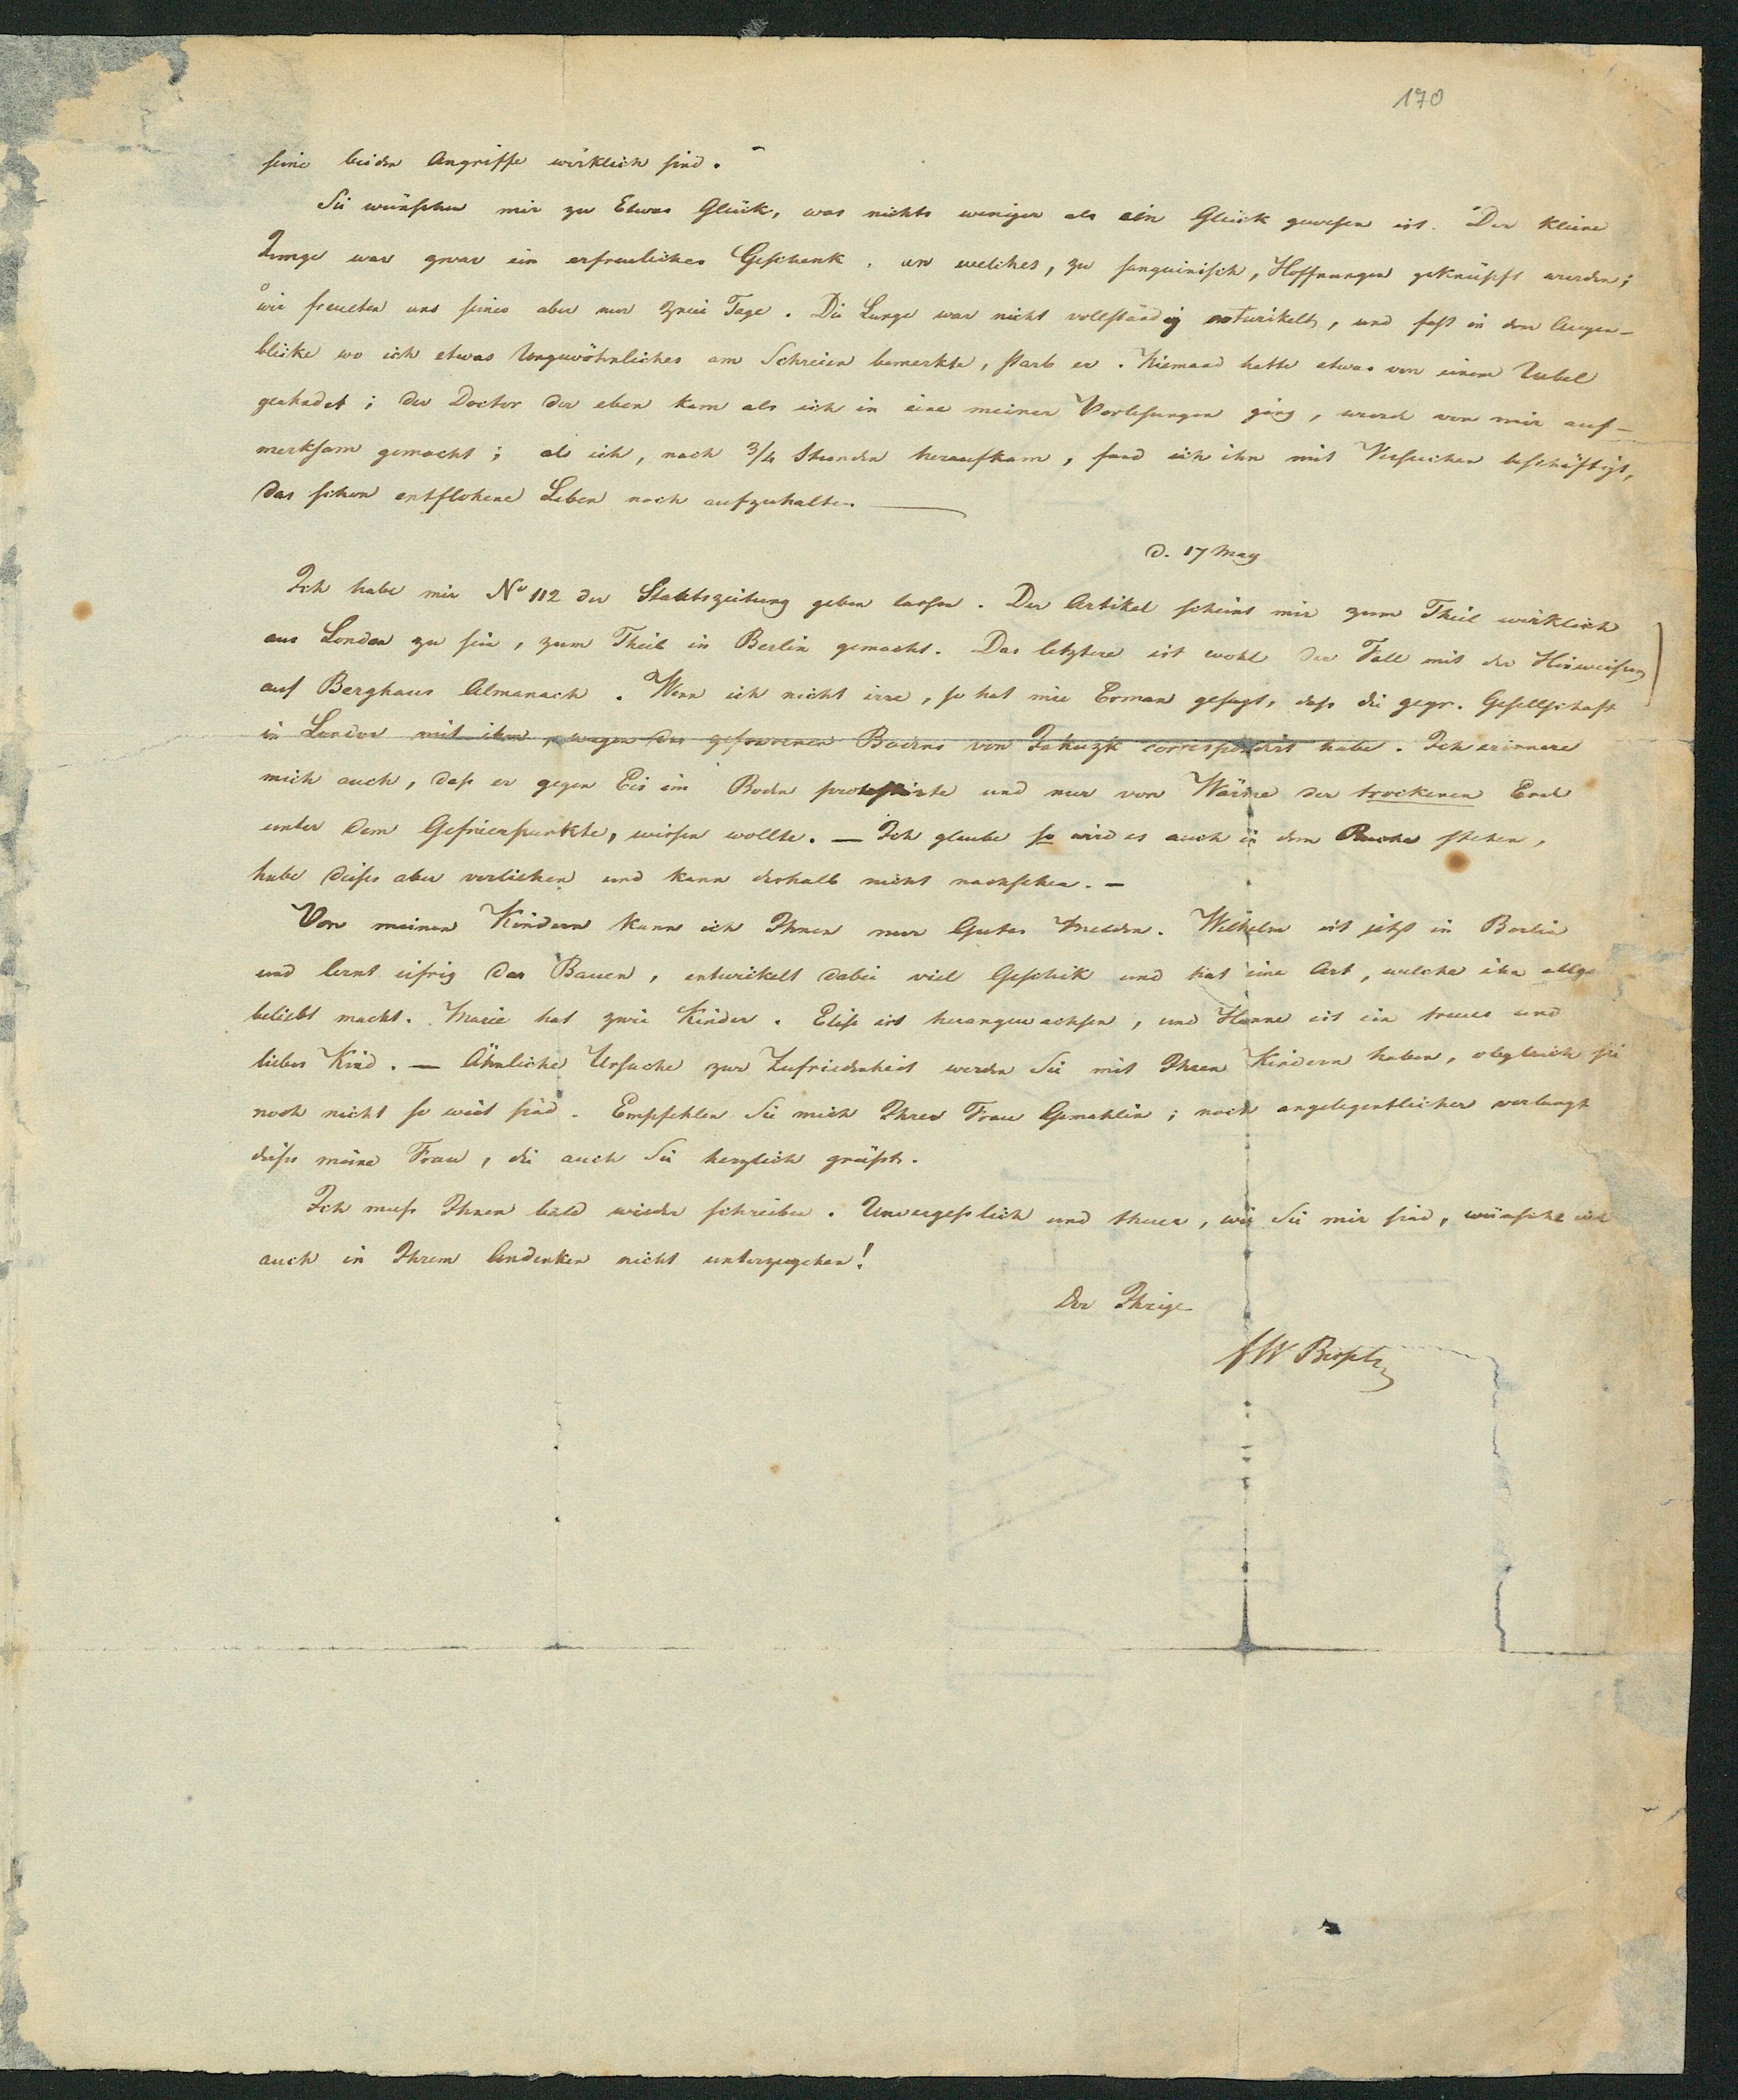 170
seine beiden Angriffe wirklich sind. –
Sie wünschen mir zu Etwas Glück, was nichts weniger als ein Glück gewesen ist. Der kleine
Junge war zwar ein erfreuliches Geschenk, an welches, zu sanguinisch, Hoffnungen geknüpft wurden;
wir freueten uns seines aber nur zwei Tage. Die Lunge war nicht vollständig entwikelt, und fast in dem Augen-
blicke wo ich etwas Ungewöhnliches am Schreien bemerkte, starb er. Niemand hatte etwas von einem Uebel
geahndet; der Doctor der eben kam als ich in eine meiner Vorlesungen ging, wurde von mir auf-
merksam gemacht; als ich, nach 3/4 Stunden heraufkam, fand ich ihn mit Versuchen beschäftigt,
das schon entflohene Leben noch aufzuhalten. —
d. 17 May
Ich habe mir No 112 der Staatszeitung geben lassen. Der Artikel scheint mir zum Theil wirklich
aus London zu sein, zum Theil in Berlin gemacht. Das letztere ist wohl der Fall mit der Hinweisung
auf Berghaus Almanach. Wenn ich nicht irre, so hat mir Erman gesagt, dass die geogr. Gesellschaft
in London mit ihm, wegen des gefrorenen Bodens von Jakuzk correspondirt habe. Ich erinnere
mich auch, dass er gegen Eis im Boden protestirte und nur von Wärme der trockenen Erde
unter dem Gefrierpunkte, wissen wollte. — Ich glaube so wird es auch in dem Buche stehen,
habe dieses aber verliehen und kann deshalb nicht nachsehen. —
Von meinen Kindern kann ich Ihnen nur Gutes melden. Wilhelm ist jetzt in Berlin
und lernt eifrig das Bauen, entwikelt dabei viel Geschik und hat eine Art, welche ihn allge
beliebt macht. Marie hat zwei Kinder. Elise ist herangewachsen, und Hanne ist ein treues und
liebes Kind. — Ähnliche Ursache zur Zufriedenheit werden Sie mit Ihren Kindern haben, obgleich sie
noch nicht so weit sind. Empfehlen Sie mich Ihrer Frau Gemahlin; noch angelegentlicher verlangt
dieses meine Frau, die auch Sie herzlich grüsst.
Ich muss Ihnen bald wieder schreiben. Unvergesslich und theuer, wie Sie mir sind, wünsche ich
auch in Ihrem Andenken nicht unterzugehen!
Der Ihrige
FW Bessel